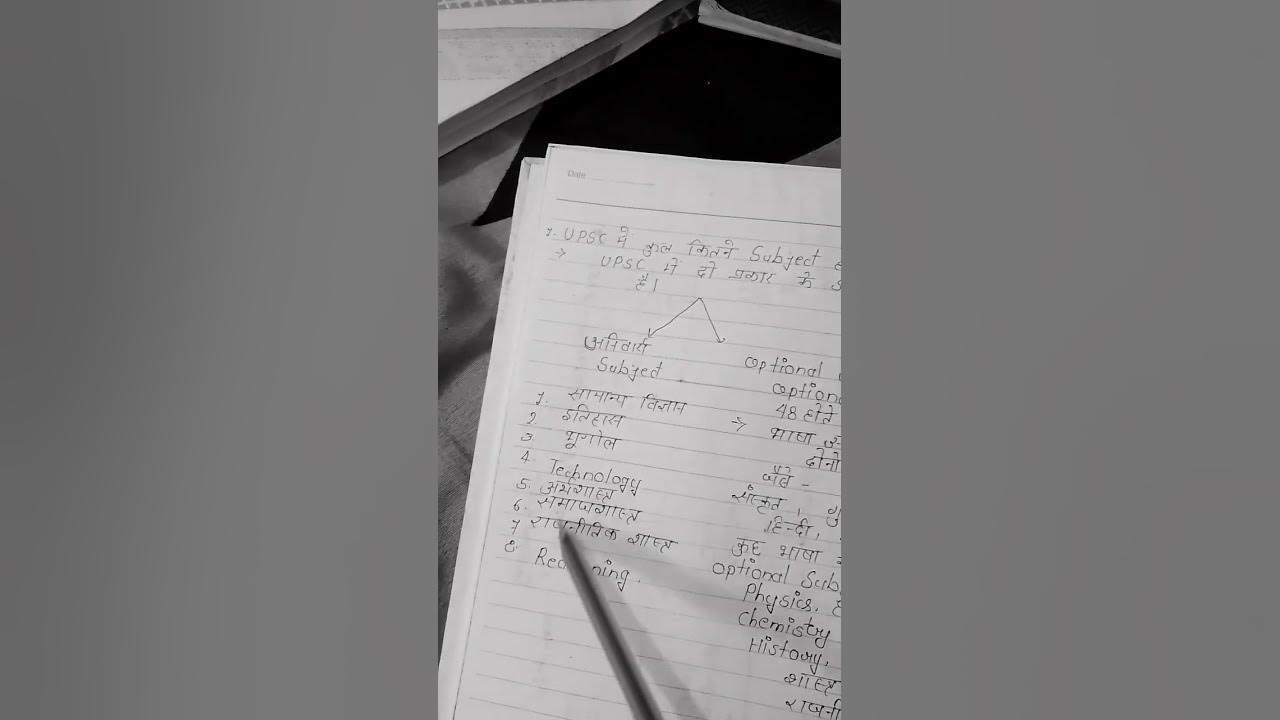 Date
1. UPSC में कुल कितने Subject
→ UPSC में दो प्रकार के
है।
अनिवार्य
Subject
1. सामान्य विज्ञान
2. इतिहास
3. भूगोल
4. Technology
5. अर्थशास्त्र
6. समाजशास्त्र
7 राजनीतिक शास्त्र
8. Re ning.
optional
option
48 होते
→ भाषा
दोनो
जैसे -
संस्कृत,
हिन्दी,
कुछ भाषा
optional Sub
Physics,
Chemistry
History,
शास्त्र
राजनी